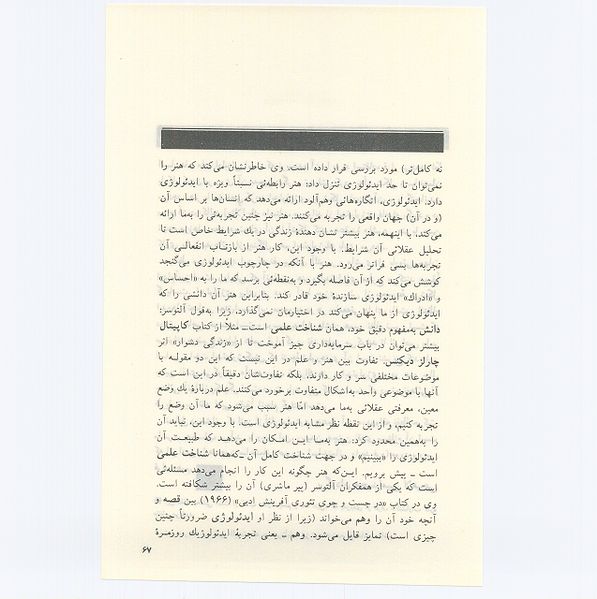 نه کامل‌تر) مورد بررسی قرار داده است. وی خاطرنشان می‌کند که هنر را
نمی‌توان تا حد ایدئولوژی تنزل داد: هنر رابطه‌ئی نسبتاً ویژه با ایدئولوژی
دارد. ایدئولوژی، انگاره‌هائی وهم‌آلود ارائه می‌دهد که انسان‌ها بر اساس آن
(و در آن) جهان واقعی را تجربه می‌کنند. هنر نیز چنین تجربه‌ئی را به‌ما ارائه
می‌کند. با اینهمه، هنر بیشتر نشان دهندهٔ زندگی در یك شرایط خاص است تا
تحلیل عقلائی آن شرایط. با وجود این، کار هنر از بازتـاب انفعالـی آن
تجربه‌ها بسی فراتر می‌رود. هنر با آنکه در چارچوب ایدئولوژی می‌گنجد
کوشش می‌کند که از آن فاصله بگیرد و به‌نقطه‌ئی برسد که ما را به «احساس»
و «ادراك» ایدئولوژی سازندهٔ خود قادر کند. بنابراین هنر آن دانشی را که
ایدئولوژی از ما پنهان می‌کند در اختیارمان نمی‌گذارد، زیرا به‌قول آلتوسر:
دانش به‌مفهوم دقیق خود، همان شناخت علمی است ـ مثلاً از کتاب کاپیتال
بیشتر می‌توان در باب سرمایه‌داری چیز آموخت تا از «زندگی دشوار» اثر
چارلز دیکنس. تفاوت بین هنر و علم در این نیست که این دو مقولـه با
موضوعات مختلفی سر و کار دارند، بلکه تفاوت‌شان دقیقاً در این است که
آنها با موضوعی واحد به‌اشکال متفاوت برخورد می‌کنند. علم دربارهٔ یك وضع
معین، معرفتی عقلائی به‌ما می‌دهد امّا هنر سبب می‌شود که ما آن وضع را
تجربه کنیم، و از این نقطه نظر مشابه ایدئولوژی است. با وجود این، نباید آن
را به‌همین محدود کرد: هنر به‌مـا ایـن امـکان را می‌دهـد که طبیعـت آن
ایدئولوژی را «ببینیم» و در جهت شناخت کامل آن ـ که‌همانا شناخت علمی
است ـ پیش برویم. این‌که هنر چگونه این کار را انجام می‌دهد مسئله‌ئی
است که یکی از همفکران آلتوسر (پیر ماشری) آن را بیشتر شکافته است.
وی در کتاب «در جست و جوی تئوری آفرینش ادبی» (۱۹۶۶) بین قصه و
آنچه خود آن را وهم می‌خواند (زیرا از نظر او ایدئولوژی ضرورتاً چنین
چیزی است) تمایز قایل می‌شود. وهم ـ یعنی تجربهٔ ایدئولوژیك روزمـرهٔ
۶۷